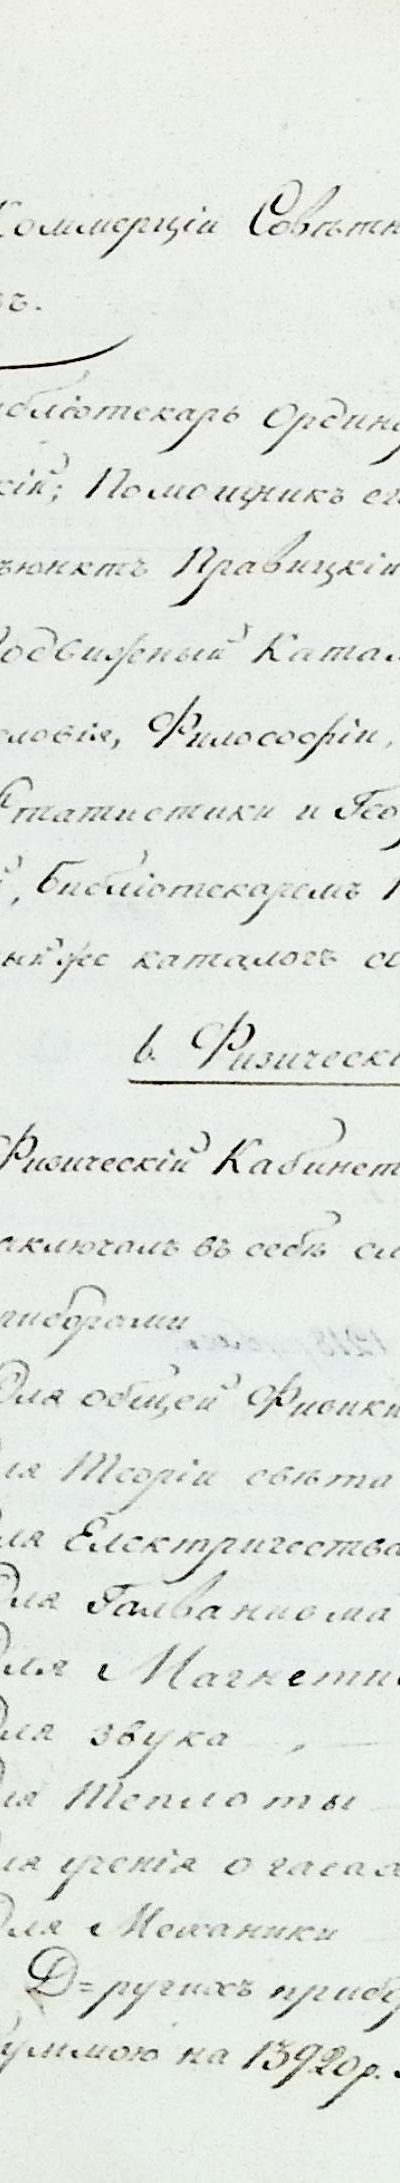 Коммерціи Совѣтн
въ.
ибліотекарь Ордина
кій; Помощникъ ег
ъюнктъ Правицкій
Подвижный Катал
ословія, Философіи,
Статистики и Гео
й, Библіотекаремъ
ый же каталогъ со
b. Физическі
Физическій Кабинет
аключалъ въ себѣ сл
приборами
Для общей Физики
Для Теоріи свѣта
Для Електричества
Для Галванизма
Для Магнетиз
Для звука
Для Теплоты
Для ученія о газах
Для Механики
Д=ругихъ прибо
суммою на 13920р.